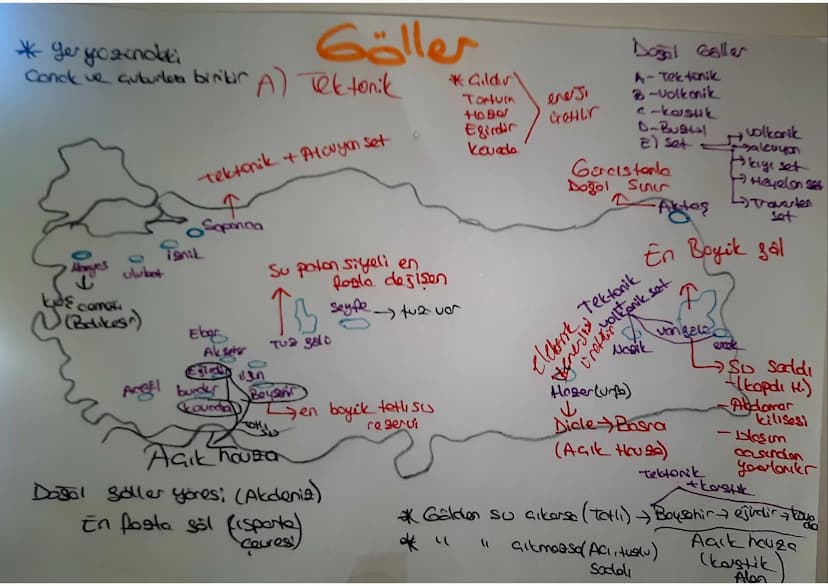 Göller
* Yeryüzündeki
Çanak ve çukurlara birikir
A) Tektonik
* Çıldır
Tortum
Hazar
Eğirdir
Kovada
enerji
üretilir
Doğal Göller
A-Tektonik
B-Volkanik
C-Karstik
D-Buzul
E) Set
volkanik
alüvyon
kıyı set
Heyelan set
Traverten
set
Tektonik + Alüvyon set
Sapanca
İznik
Ulubat
Manyas
Kuş cenneti
(Balıkesir)
Gürcistanla
Doğal Sınır
Aktaş
En Büyük göl
Su potansiyeli en
fazla değişen
Tuz gölü
Seyfe → tuz var
Tektonik
volkanik set
Van gölü
Nazik
erçek
→ Su sodalı
-(kapalı H.)
- Akdamar
kilisesi
- Ulaşım
açısından
yararlanılır
Elektrik
enerjisi
üretilir
Hazar (Urfa)
Dicle → Basra
(Açık Havza)
Eber
Akşehir
Eğirdir
ılgın
Burdur
Beyşehir
Kovada
Tatlı
su
→ en büyük tatlı su
rezervi
Açık havza
Doğal göller yöresi (Akdeniz)
En fazla göl (Isparta
çevresi)
Tektonik
+ karstik
* Gölden su çıkarsa (Tatlı) → Beyşehir → eğirdir → kovada
* " " çıkmazsa (Acı, tuzlu)
sodalı
Açık havza
(karstik
Alan